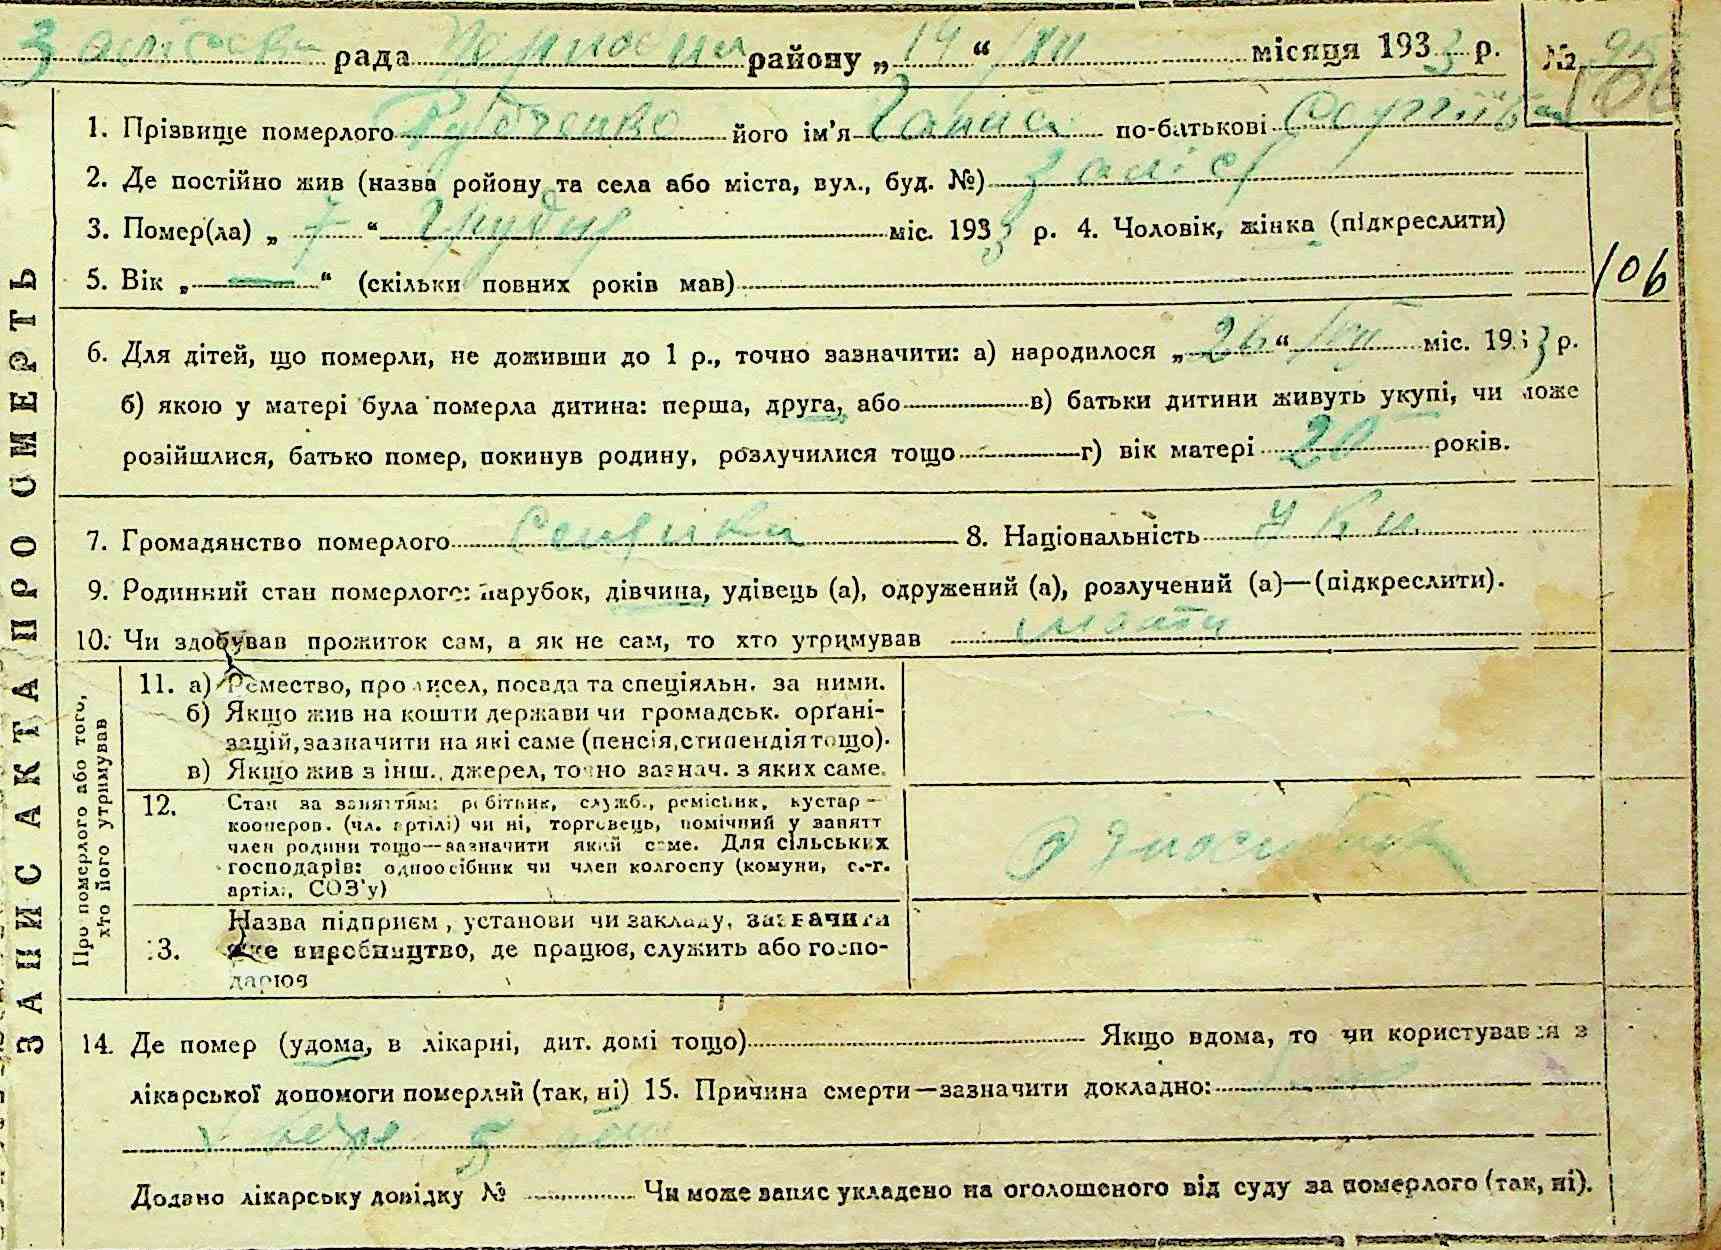 рада районну „ 14 “ XII місяця 1933 р. № 95
106
1. Прізвище померлого його ім'я Ганна по-батькові Сергіївна
2. Де постійно жив (назва ройону та села або міста, вул., буд. №) Заліс
3. Помер(ла) „ 7 “ грудня міс. 1933 р. 4. Чоловік, жінка (підкреслити)
5. Вік „ — “ (скільки повних років мав)
106
6. Для дітей, що померли, не доживши до 1 р., точно зазначити: а) народилося „ 26 “ міс. 1933 р.
б) якою у матері була померла дитина: перша, друга, або в) батьки дитини живуть укупі, чи може
розійшлися, батько помер, покинув родину, розлучилися тощо г) вік матері 20 років.
7. Громадянство померлого 8. Національність Укр.
9. Родинний стан померлого: парубок, дівчина, удівець (а), одружений (а), розлучений (а)—(підкреслити).
10. Чи здобував прожиток сам, а як не сам, то хто утримував мати
ЗАПИС АКТА ПРО СМЕРТЬ
Про померлого або того, хто його утримував
11. а) Ремество, промисел, посада та спеціяльн. за ними.
б) Якщо жив на кошти держави чи громадськ. орґані-
зацій, зазначити на які саме (пенсія, стипендія тощо).
в) Якщо жив з інш., джерел, точно зазнач. з яких саме.
12. Стан за заняттям: робітник, служб., ремісник, кустар—
кооперов. (чл. артілі) чи ні, торговець, помічний у занятт
член родини тощо—зазначити який саме. Для сільських
господарів: одноосібник чи член колгоспу (комуни, с.-г.
артілі, СОЗ'у)
Одноосібник
13. Назва підприєм, установи чи закладу, зазначити
яке виробництво, де працює, служить або госпо-
дарює
14. Де помер (удома, в лікарні, дит. домі тощо) Якщо вдома, то чи користувався з
лікарської допомоги померлий (так, ні) 15. Причина смерти—зазначити докладно:
Додано лікарську довідку № Чи може запис укладено на оголошеного від суду за померлого (так, ні).